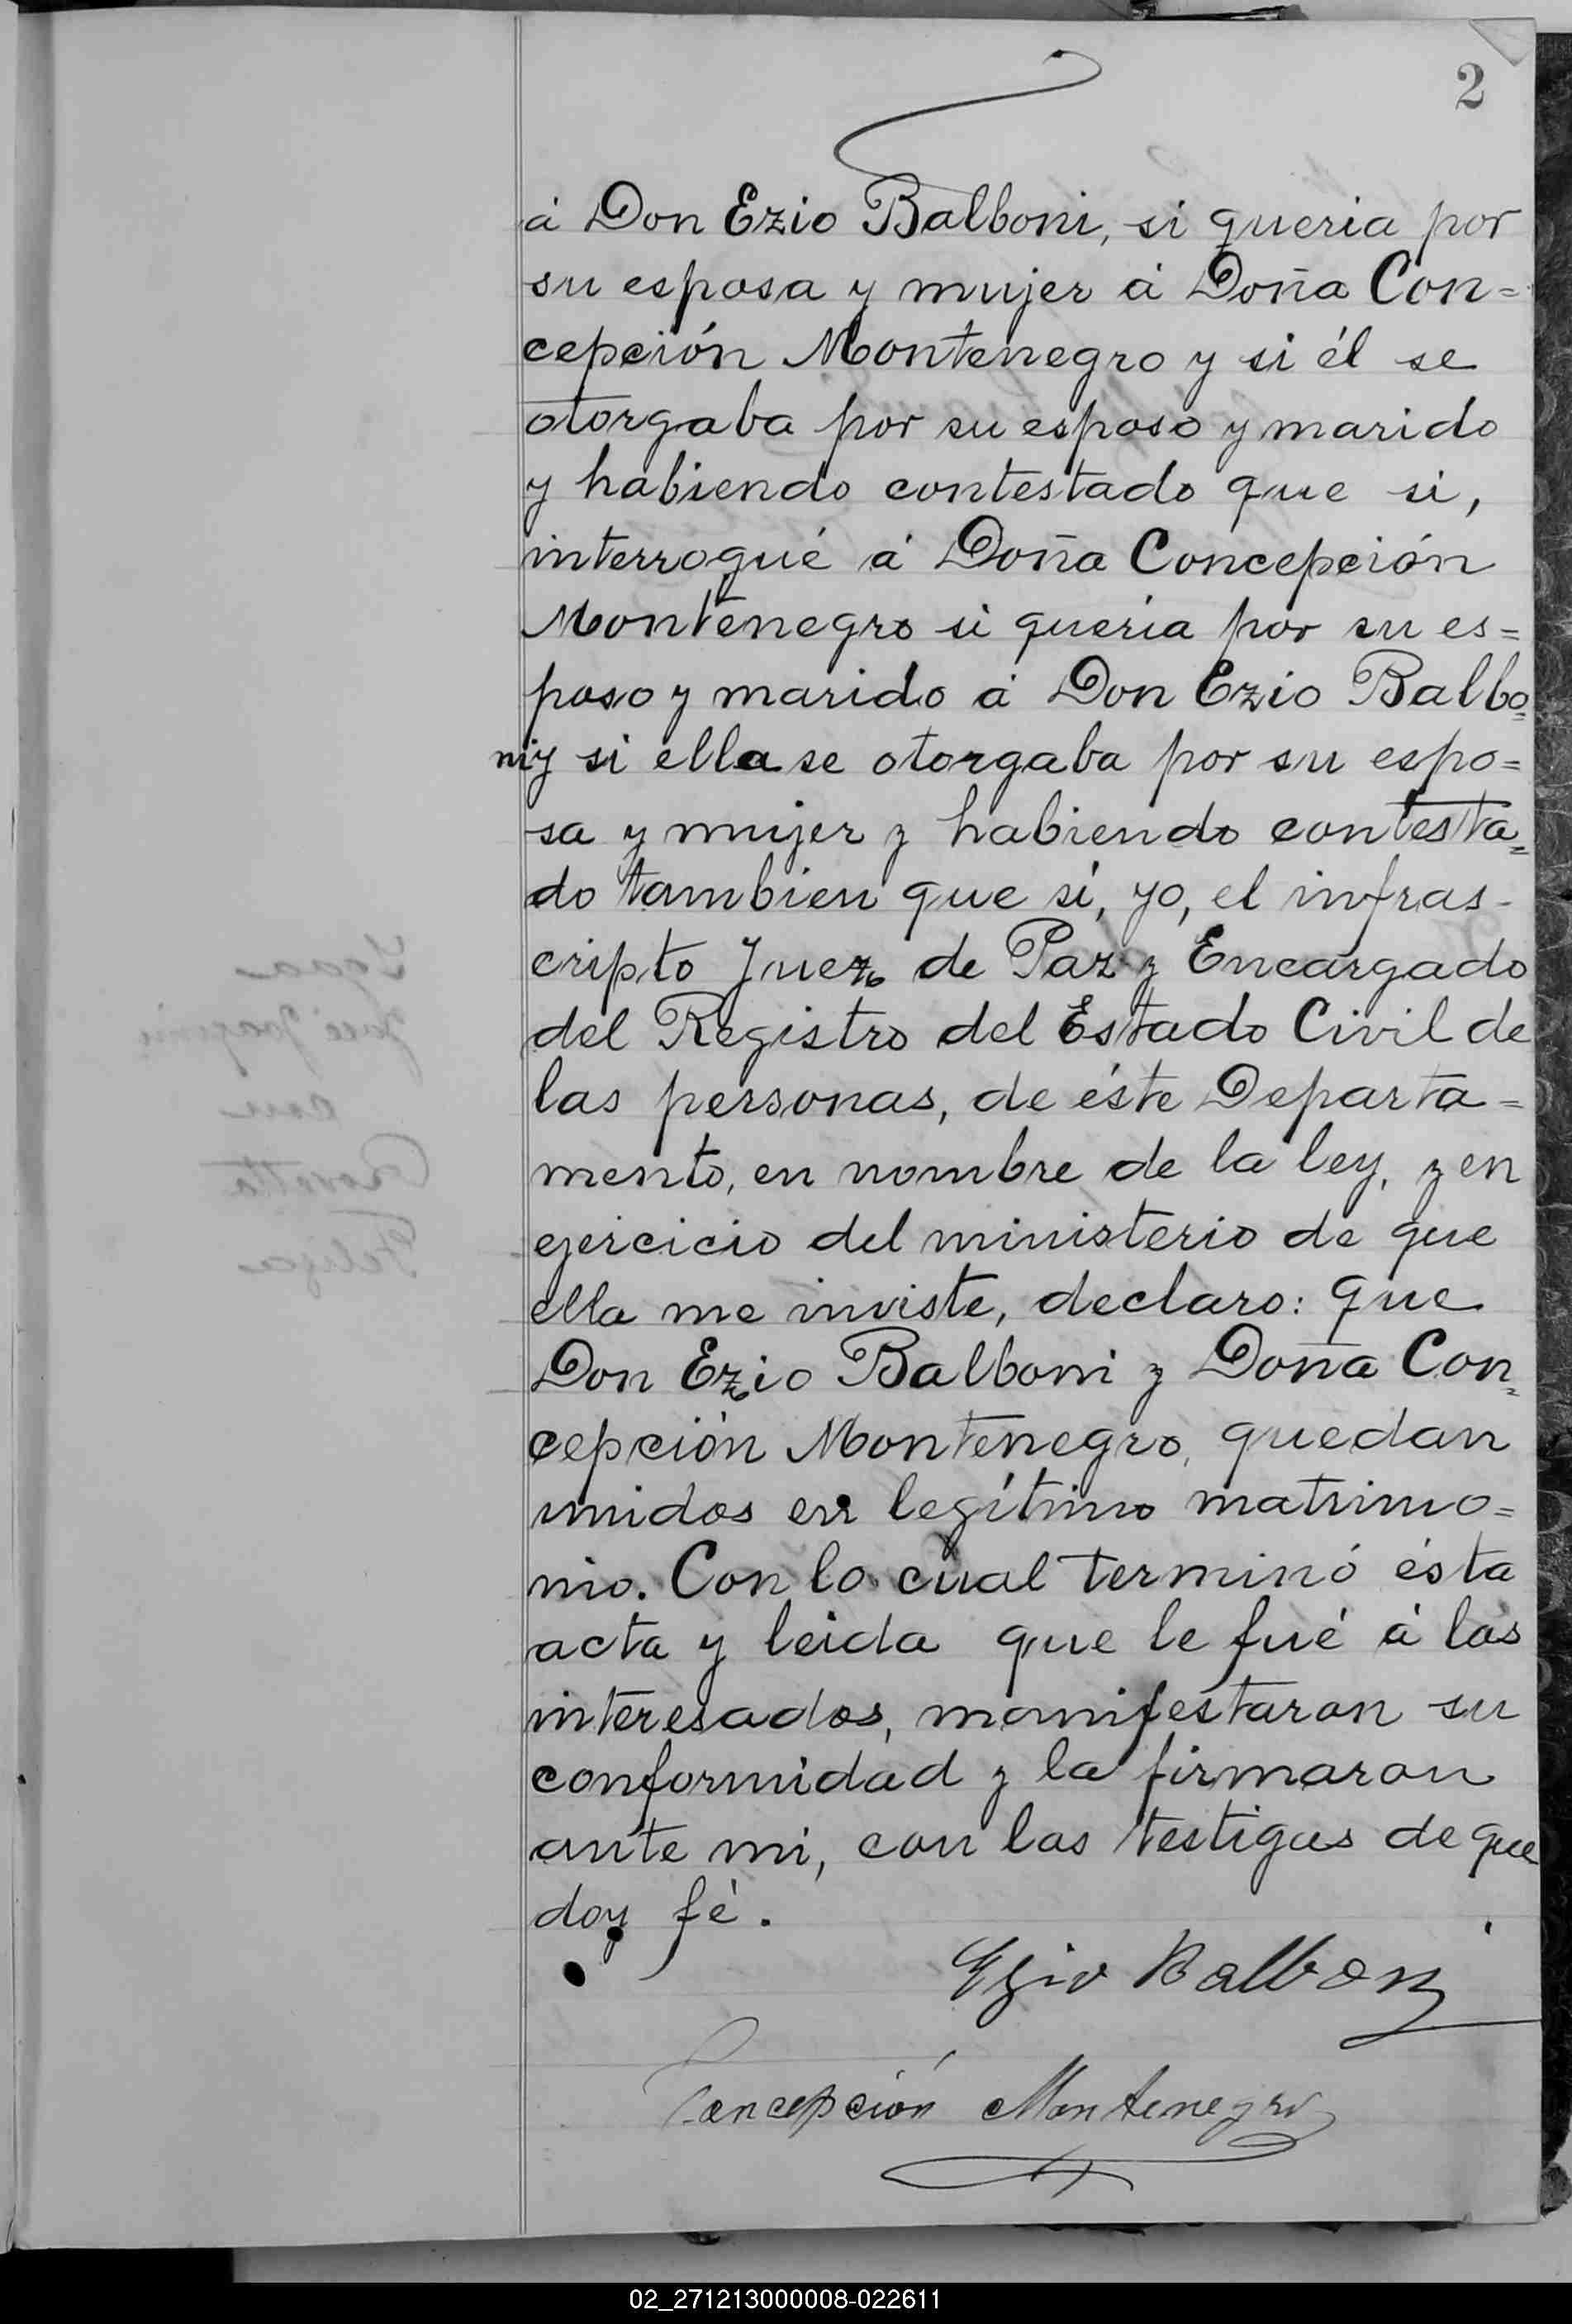 2
á Don Ezio Balboni, si queria por
su esposa y mujer á Doña Con=
cepción Montenegro y si él se
otorgaba por su esposo y marido
y habiendo contestado que si,
interrogué á Doña Concepción
Montenegro si queria por su es=
poso y marido á Don Ezio Balbo=
ni y si ella se otorgaba por su espo=
sa y mujer y habiendo contesta=
do tambien que sí, yo, el infras-
cripto Juez de Paz y Encargado
del Registro del Estado Civil de
las personas, de éste Departa=
mento, en nombre de la ley, y en
ejercicio del ministerio de que
ella me inviste, declaro: que
Don Ezio Balboni y Doña Con=
cepción Montenegro, quedan
unidos en legítimo matrimo=
nio. Con lo cual terminó ésta
acta y leida que le fué á los
interesados, manifestaron su
conformidad y la firmaron
ante mi, con los testigos de que
doy fé.
Ezio Balboni
Concepción Montenegro
02_271213000008-022611